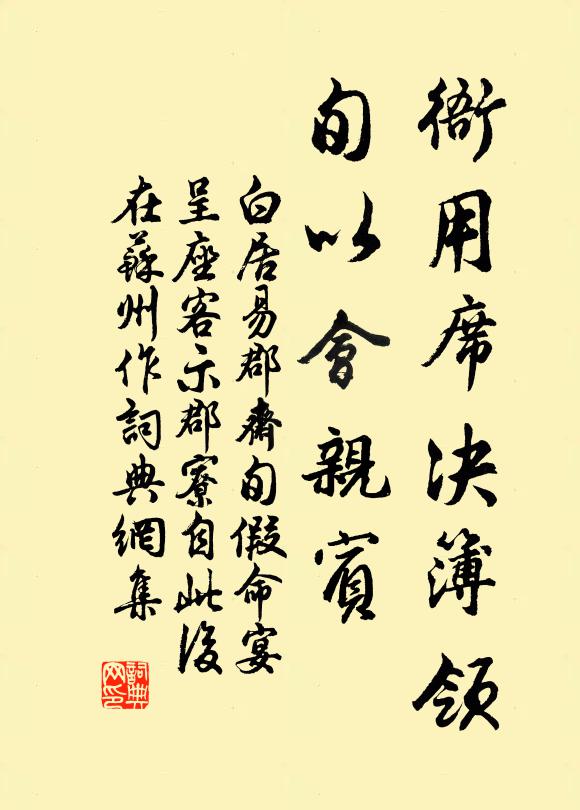 衙用席决簿領
旬以會親賓
白居易郡齋旬假命宴
呈座客示郡寮自此後
在蘇州作詞典網集
詞典網印